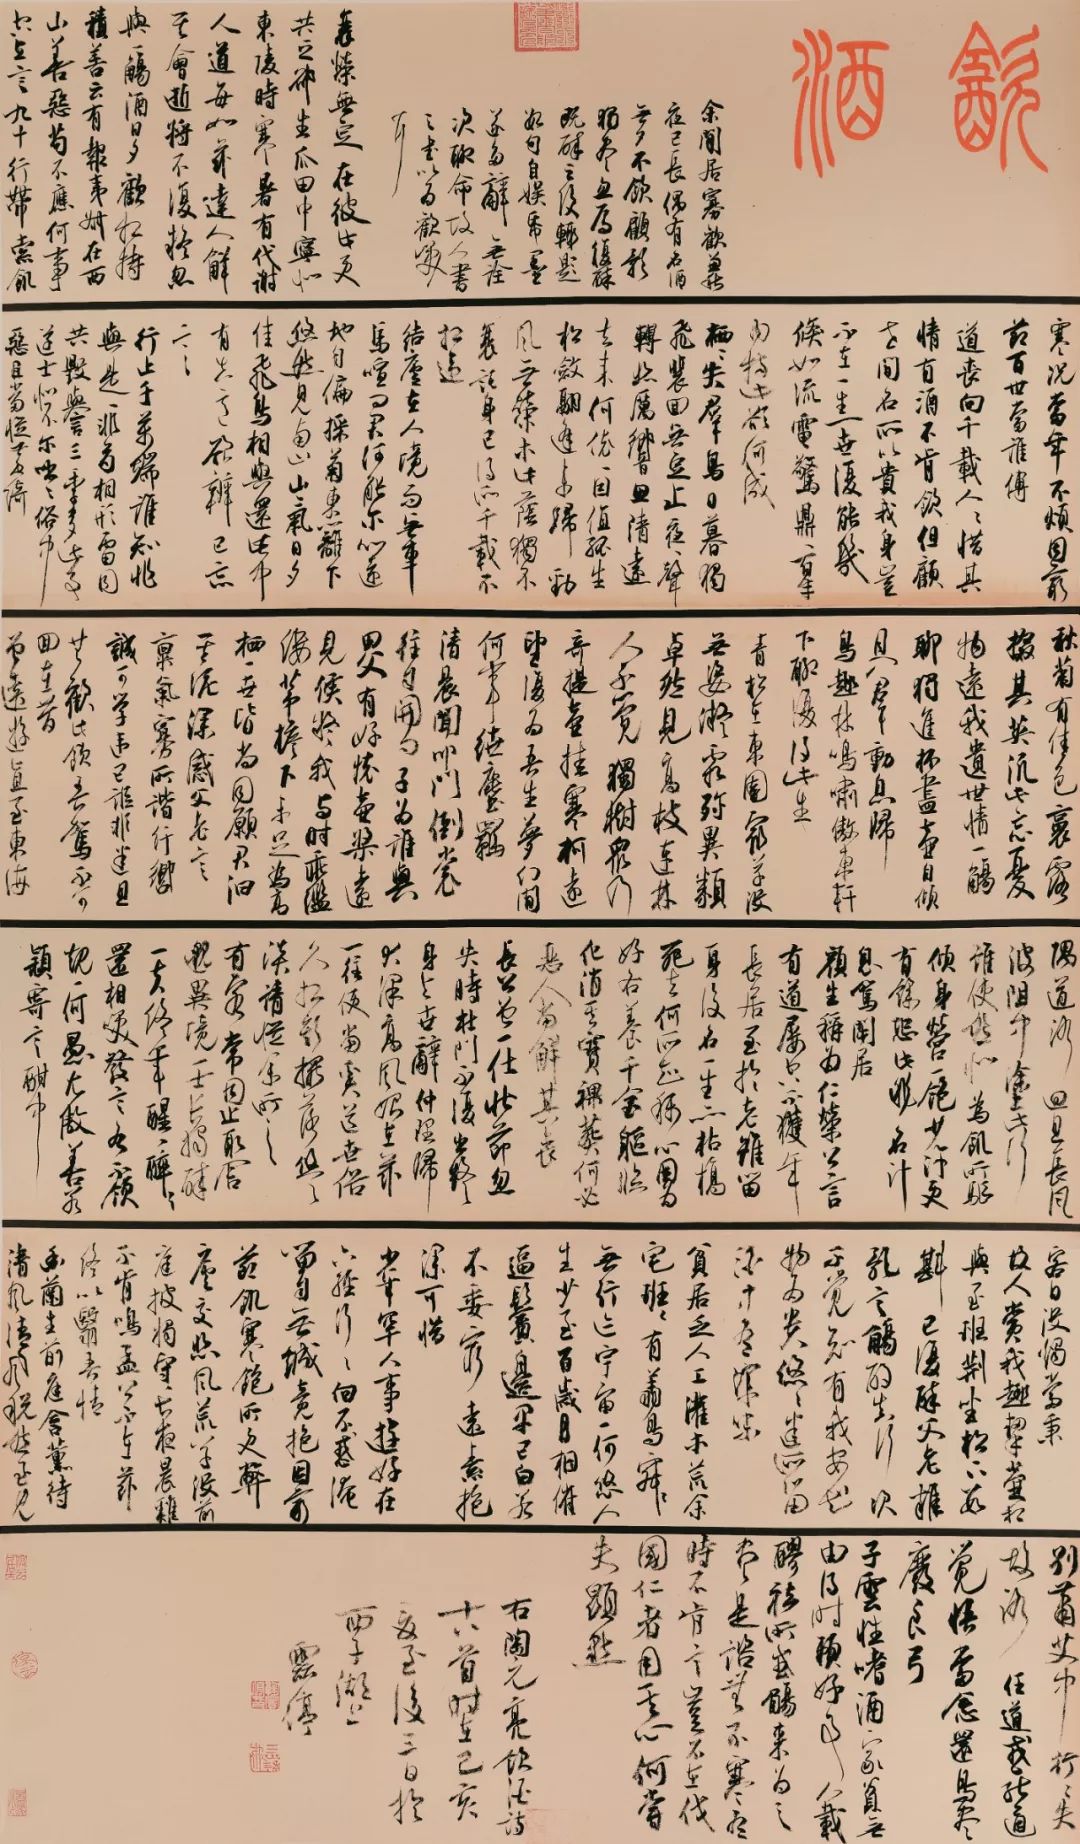 飲酒
余閒居寡歡兼
夜已長偶有名酒
無夕不飲顧影
獨盡忽焉復醉
既醉之後輒題
數句自娛紙墨
遂多辭無詮
次聊命故人書
之以為歡笑
爾
衰榮無定在彼此更
共之邵生瓜田中寧似
東陵時寒暑有代謝
人道每如茲達人解
其會逝將不復疑忽
與一觴酒日夕歡相持
積善云有報夷叔在西
山善惡苟不應何事
空立言九十行帶索飢
寒況當年不賴固窮
節百世當誰傳
道喪向千載人人惜其
情有酒不肯飲但顧
世間名所以貴我身豈
不在一生一世復能幾
倏如流電驚鼎鼎百年
內持此欲何成
栖栖失群鳥日暮猶獨
飛裴回無定止夜夜聲
轉悲厲響思清遠
去來何依依因值孤生
松斂翮遙來歸勁
風無榮木此蔭獨不
衰託身已得所千載不
相違
結廬在人境而無車
馬喧問君何能爾心遠
地自偏採菊東籬下
悠然見南山山氣日夕
佳飛鳥相與還此中
有真意欲辨已忘
言
行止千萬端誰知非
與是是非苟相形雷同
共毀譽三季多此事
達士似不爾咄咄俗中
惡且當從黃綺
秋菊有佳色裛露
掇其英汎此忘憂
物遠我遺世情一觴
聊獨進杯盡壺自傾
日入群動息歸
鳥趨林鳴嘯傲東軒
下聊復得此生
青松在東園眾草沒
其姿凝霜殄異類
卓然見高枝連林
人不覺獨樹眾乃
奇提壺挂寒柯遠
望復為吾生夢幻間
何事紲塵羈
清晨聞叩門倒裳
往自開問子為誰與
田父有好懷壺漿遠
見候疑我與時乖襤
縷茅檐下未足為高
栖一世皆尚同願君汩
其泥深感父老言
稟氣寡所諧紆轡
誠可學違己詎非迷且
共歡此飲吾駕不可
回在昔
曾遠遊直至東海
隅道路迴且長風
波阻中塗此行
誰使然似為飢所驅
傾身營一飽少許便
有餘恐此非名計
息駕閒居
顏生稱為仁榮公言
有道屢空不獲年
長飢至於老雖留
身後名一生亦枯槁
死去何所知稱心固為
好客養千金軀臨
化消其寶裸葬何必
惡人當解其表
長公曾一仕壯節忽
失時杜門不復出終
身與世辭仲理歸
大澤高風始在茲
一往便當世俗
久相欺擺落悠悠
談請從余所之
有客常同止取舍
邈異境一士長獨醉
一夫終年醒醒醉
還相笑發言各不領
規規一何愚兀傲差若
穎寄言酣中
客日沒燭當秉
故人賞我趣挈壺相
與至班荊坐松下數
斟已復醉父老雜
亂言觴酌失行次
不覺知有我安知
物為貴悠悠迷所留
酒中有深味
貧居乏人工灌木荒余
宅班班有翔鳥寂寂
無行跡宇宙一何悠人
生少至百歲月相催
逼鬢邊早已白若
不委窮達素抱
深可惜
少年罕人事遊好在
六經行行向不惑淹
留自無成竟抱固窮
節飢寒飽所更弊
廬交悲風荒草沒前
庭披褐守長夜晨雞
不肯鳴孟公不在茲
終以翳吾情
幽蘭生前庭含薰待
清風清風脫然至見
別蕭艾中行行失
故路任道或能通
覺悟當念還鳥盡
廢良弓
子雲性嗜酒家貧無
由得時賴好事人載
醪祛所惑觴來為之
盡是諮無不塞有
時不肯言豈不在伐
國仁者用其心何嘗
失顯默
右陶元亮飲酒詩
十八首時在己亥
夏至後三日於
西子湖上